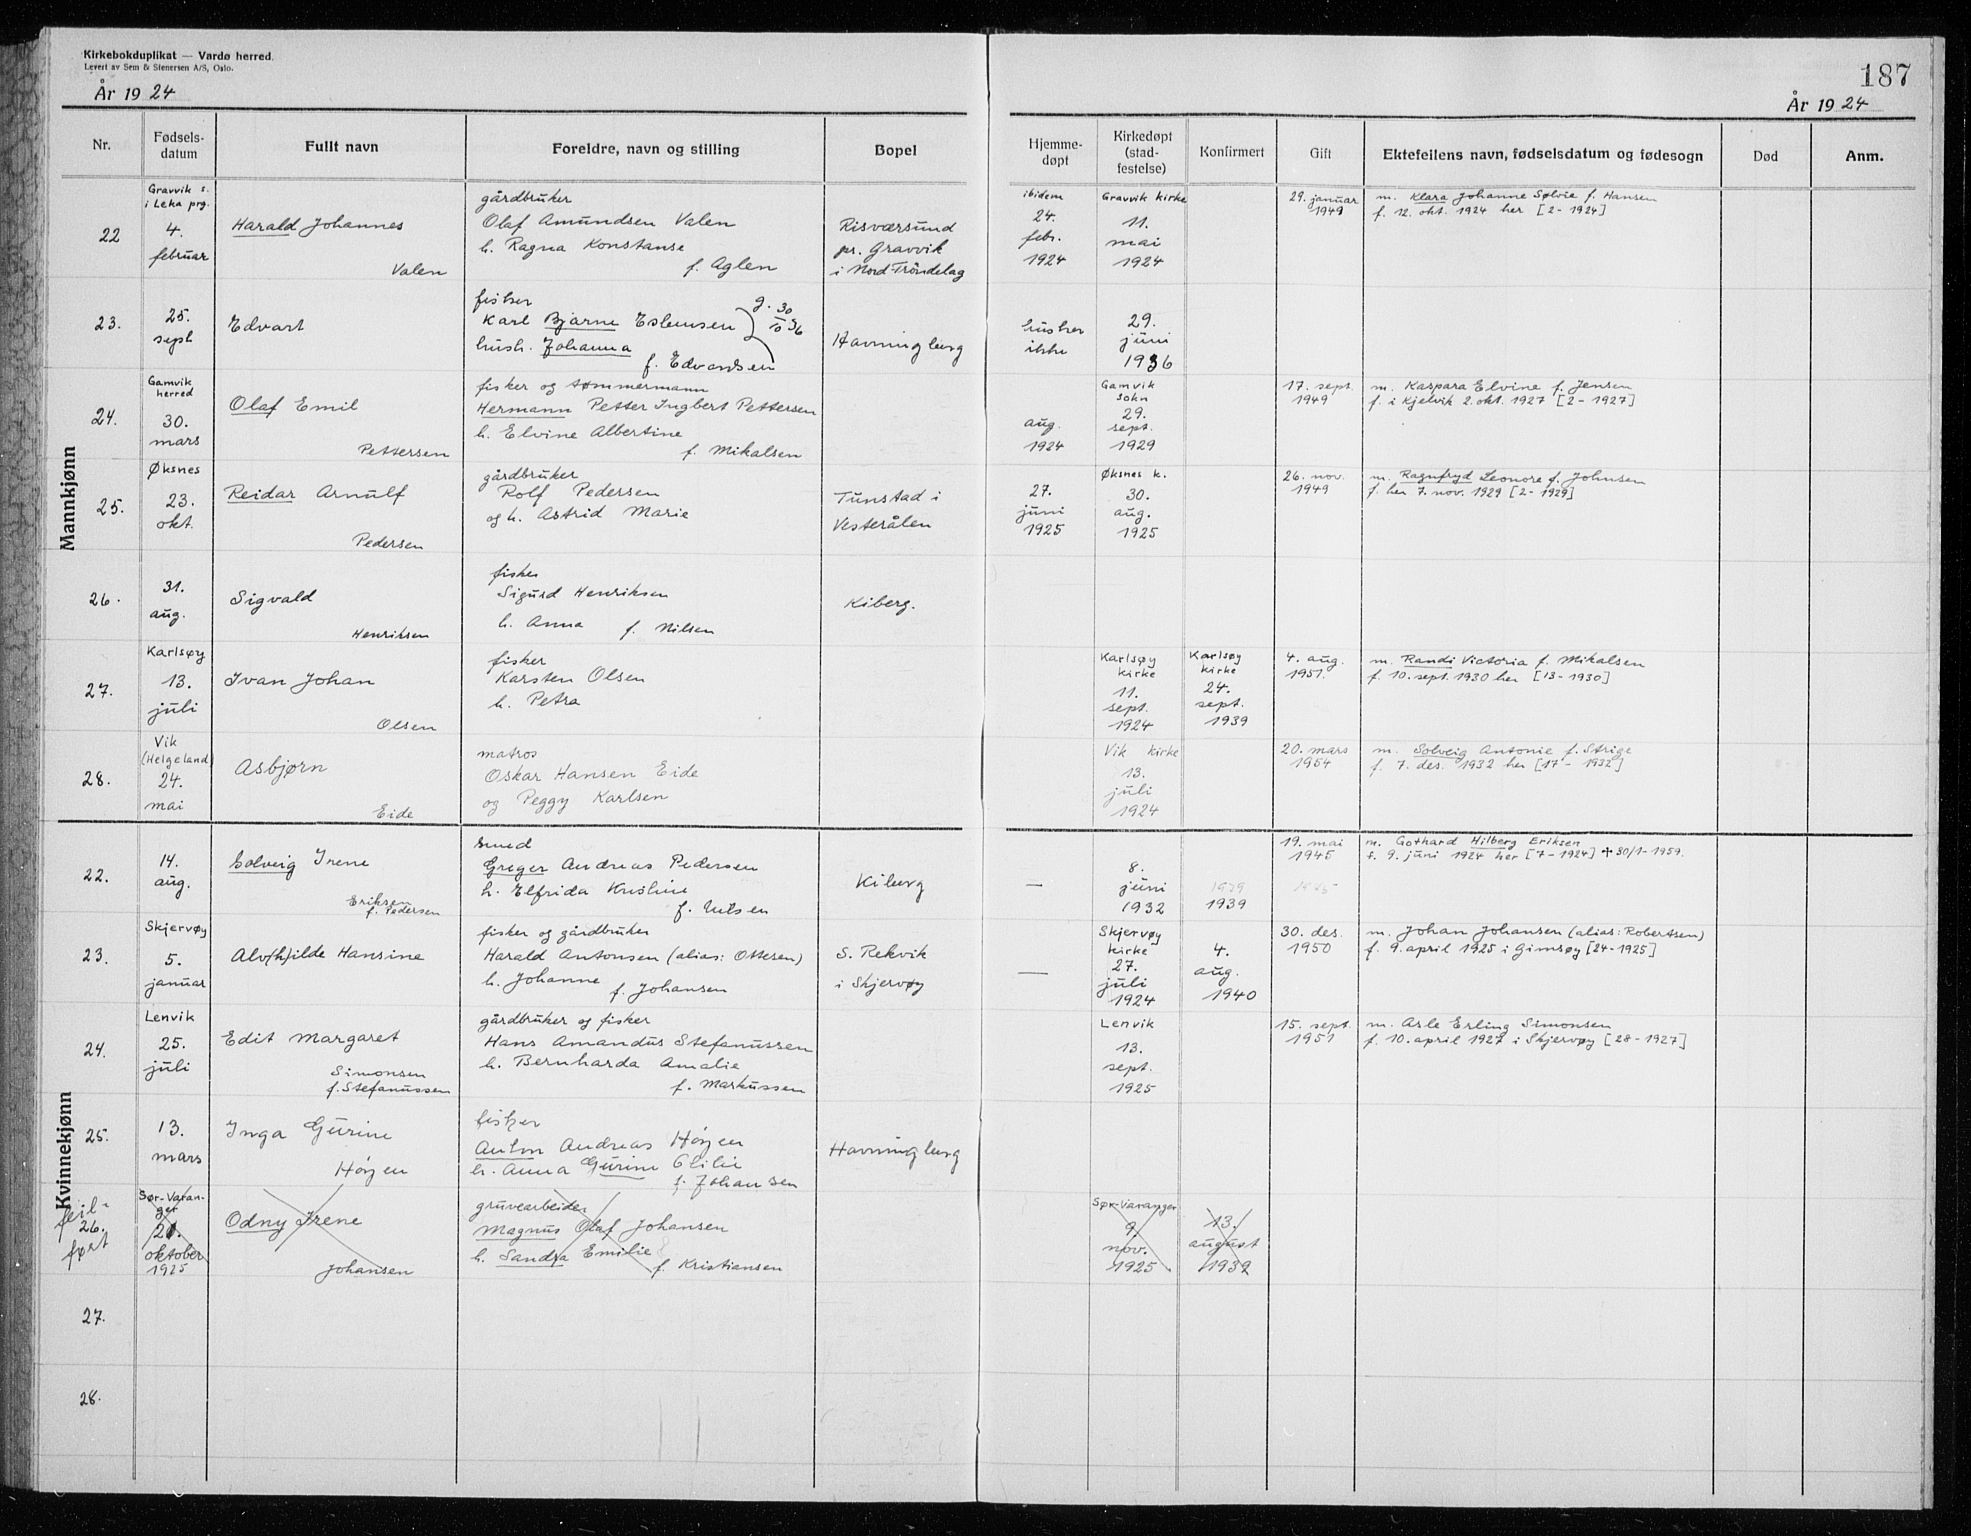 Kirkebokduplikat — Vardø herred.
Levert av Sem & Stenersen A/S, Oslo.
År 1924
187
År 1924
Nr.
Fødsels-
datum
Fullt navn
Foreldre, navn og stilling
Bopel
Hjemme-
døpt
Kirkedøpt
(stad-
festelse)
Konfirmert
Gift
Ektefellens navn, fødselsdatum og fødesogn
Død
Anm.
Mannkjønn
22
Gravvik s.
i Leka prg.
4.
februar
Harald Johannes
Valen
gårdbruker
Olaf Amundsen Valen
h. Ragna Konstanse
f. Aglen
Risværsund
pr. Gravvik
i Nord Trøndelag
ibidem
24.
febr.
1924
Gravvik kirke
11.
mai
1924
29. januar
1949
m. Klara Johanne Sølvie f. Hansen
f. 12. okt. 1924 her [2-1924]
23.
25.
sept
Edvart
fisker
Karl Bjarne Eslensen
g. 30/10 36
hush. Johanna
f. Edvardsen
Havningberg
husker
ikke
29.
juni
1936
24.
Gamvik
herred
30.
mars
Olaf Emil
Pettersen
fisker og tømmermann
Hermann Petter Ingbert Pettersen
h. Elvine Albertine
f. Mikalsen
aug.
1924
Gamvik
sokn
29.
sept.
1929
17. sept.
1949
m. Kaspara Elvine f. Jensen
f. i Kjelvik 2. okt. 1927 [2-1927]
25.
Øksnes
23.
okt.
Reidar Arnulf
Pedersen
gårdbruker
Rolf Pedersen
og h. Astrid Marie
Tunstad i
Vesterålen
27.
juni
1925
Øksnes k.
30.
aug.
1925
26. nov.
1949
m. Ragnfryd Leonore f. Johnsen
f. her 7. nov. 1929 [2-1929]
26.
31.
aug.
Sigvald
Henriksen
fisker
Sigurd Henriksen
h. Anna f. Nilsen
Kiberg.
27.
Karlsøy
13.
juli
Ivan Johan
Olsen
fisker
Karsten Olsen
h. Petra
Karlsøy
kirke
11.
sept.
1924
Karlsøy
kirke
24.
sept.
1939
4. aug.
1951.
m. Randi Victoria f. Mikalsen
f. 10. sept. 1930 her [13-1930]
28.
Vik
(Helgeland)
24.
mai
Asbjørn
Eide
matros
Oskar Hansen Eide
og Peggy Karlsen
Vik kirke
13.
juli
1924
20. mars
1954
m. Solveig Antonie f. Strige
f. 7. des. 1932 her [17-1932]
Kvinnekjønn
22.
14.
aug.
Solveig Irene
Eriksen
f. Pedersen
smed
Greger Andreas Pedersen
h. Elfrida Kristine
f. Nilsen
Kiberg
—
8.
juni
1932
1939
1939
19. mai
1945
1945
m. Gothard Hilberg Eriksen
f. 9. juni 1924 her [7-1924] ✝ 30/1-1959.
23.
Skjervøy
5.
januar
Alv(h)ilde Hansine
fisker og gårdbruker
Harald Antonsen (alias: Ottesen)
h. Johanne
f. Johansen
S. Rekvik
i Skjervøy
—
Skjervøy
kirke
27.
juli
1924
4.
aug.
1940
30. des.
1950
m. Johan Johansen (alias: Robertsen)
f. 9. april 1925 i Gimsøy [24-1925]
24.
Lenvik
25.
juli
Edit Margaret
Simonsen
f. Stefanussen
gårdbruker og fisker
Hans Amandus Stefanussen
h. Bernharda Amalie
f. Markussen
Lenvik
13.
sept.
1925
15. sept.
1951
m. Asle Erling Simonsen
f. 10. april 1927 i Skjervøy [28-1927]
25.
13.
mars
Inga Gurine
Høyen
fisker
Anton Andreas Høyen
h. Anna Gurine Otilie
f. Johansen
Havningberg
feil-
26.
ført
Sør-Varan-
ger
21.
oktober
1925
Odny Irene
Johansen
gruvearbeider
Magnus Olaf Johansen
h. Sandra Emilie
f. Kristiansen
Sør-Varanger
9
nov.
1925
13.
august
1939
27.
28.